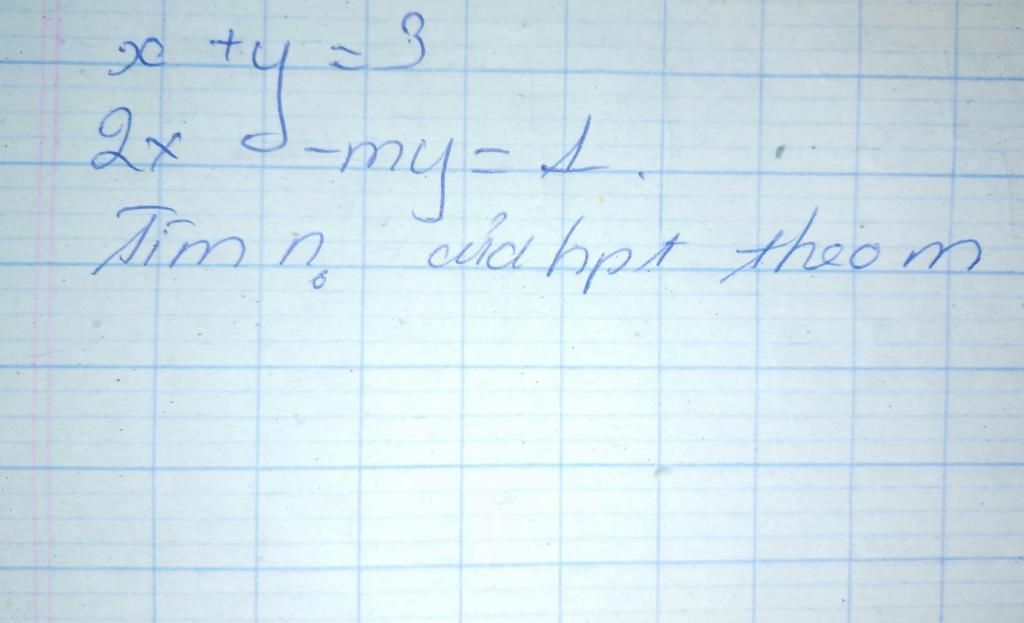 x + y = 3
2x - my = 1.
Tìm n₀ của hpt theo m